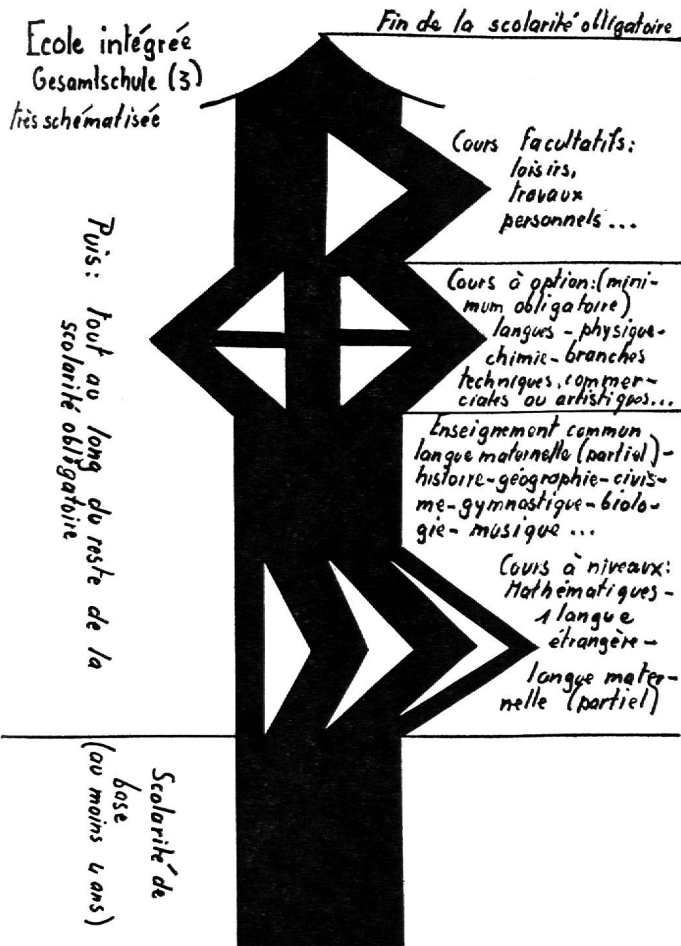 Ecole intégrée
Gesamtschule (3)
très schématisée
Fin de la scolarité obligatoire
Cours facultatifs:
loisirs,
travaux
personnels...
Cours à option:(mini-
mum obligatoire)
langues - physique-
chimie - branches
techniques, commer-
ciales ou artistiques...
Enseignement commun
langue maternelle (partiel) -
histoire-géographie-civis-
me-gymnastique-biolo-
gie- musique ...
Cours à niveaux:
Mathématiques -
1 langue
étrangère -
langue mater-
nelle (partiel)
Puis: tout au long du reste de la
scolarité obligatoire
Scolarité de
base
(au moins 4 ans)